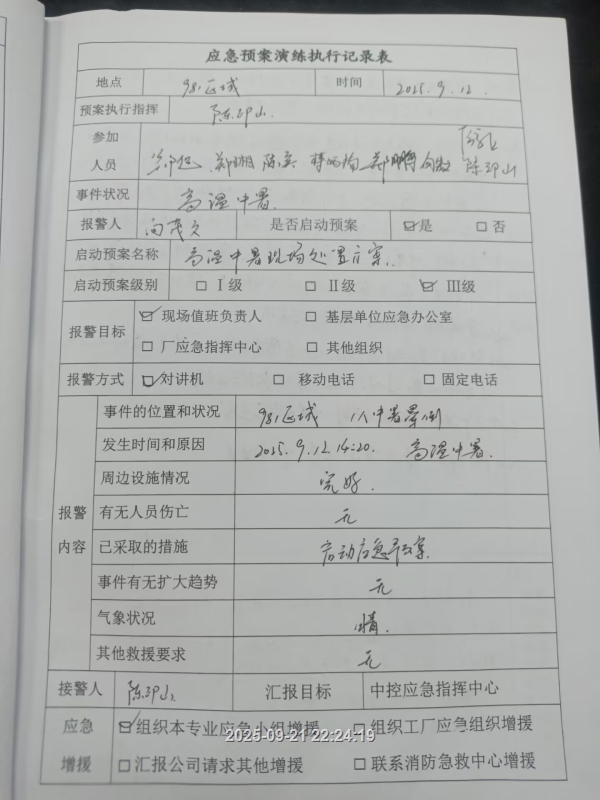 应急预案演练执行记录表
地点 981区域 时间 2025.9.12.
预案执行指挥 陈卫山.
参加
人员 郑 陈 郑鹏 陈卫山
事件状况 高温中暑.
报警人 向茂文 是否启动预案 ☑是 □否
启动预案名称 高温中暑现场处置方案.
启动预案级别 □Ⅰ级 □Ⅱ级 ☑Ⅲ级
报警目标 ☑现场值班负责人 □基层单位应急办公室
□厂应急指挥中心 □其他组织
报警方式 ☑对讲机 □移动电话 □固定电话
报警内容
事件的位置和状况 981区域 1人中暑晕倒
发生时间和原因 2025.9.12.14:20. 高温中暑.
周边设施情况 完好.
有无人员伤亡 无
已采取的措施 启动应急预案.
事件有无扩大趋势 无
气象状况 晴.
其他救援要求 无
接警人 陈卫山 汇报目标 中控应急指挥中心
应急 ☑组织本专业应急小组增援 □组织工厂应急组织增援
2025-09-21 22:24:19
增援 □汇报公司请求其他增援 □联系消防急救中心增援